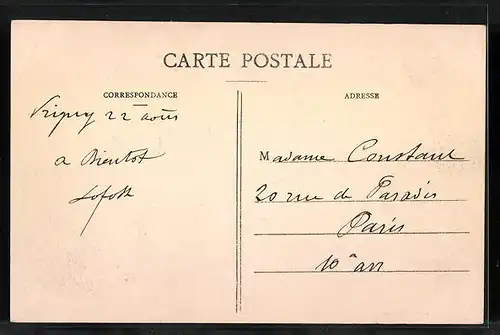 CARTE POSTALE
CORRESPONDANCE
ADRESSE
22 août
a Bientot
Madame Constant
20 rue de Paradis
Paris
10e arr